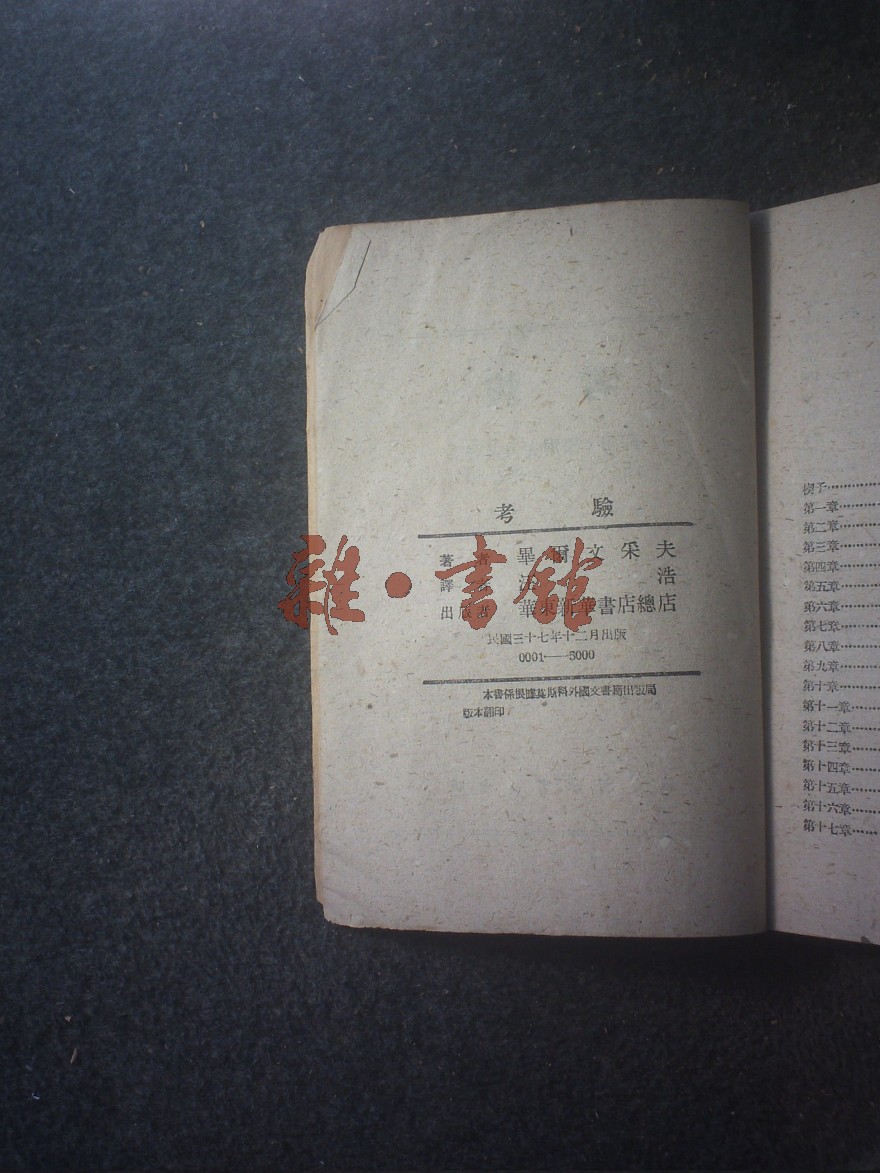 考驗
著者 畢爾文采夫
譯者 浩
出版者 華東新華書店總店
民國三十七年十二月出版
0001——5000
本書係根據莫斯科外國文書籍出版局
版本翻印
雜·書館
楔子…………
第一章…………
第二章…………
第三章…………
第四章…………
第五章…………
第六章…………
第七章…………
第八章…………
第九章…………
第十章…………
第十一章…………
第十二章…………
第十三章…………
第十四章…………
第十五章…………
第十六章…………
第十七章…………